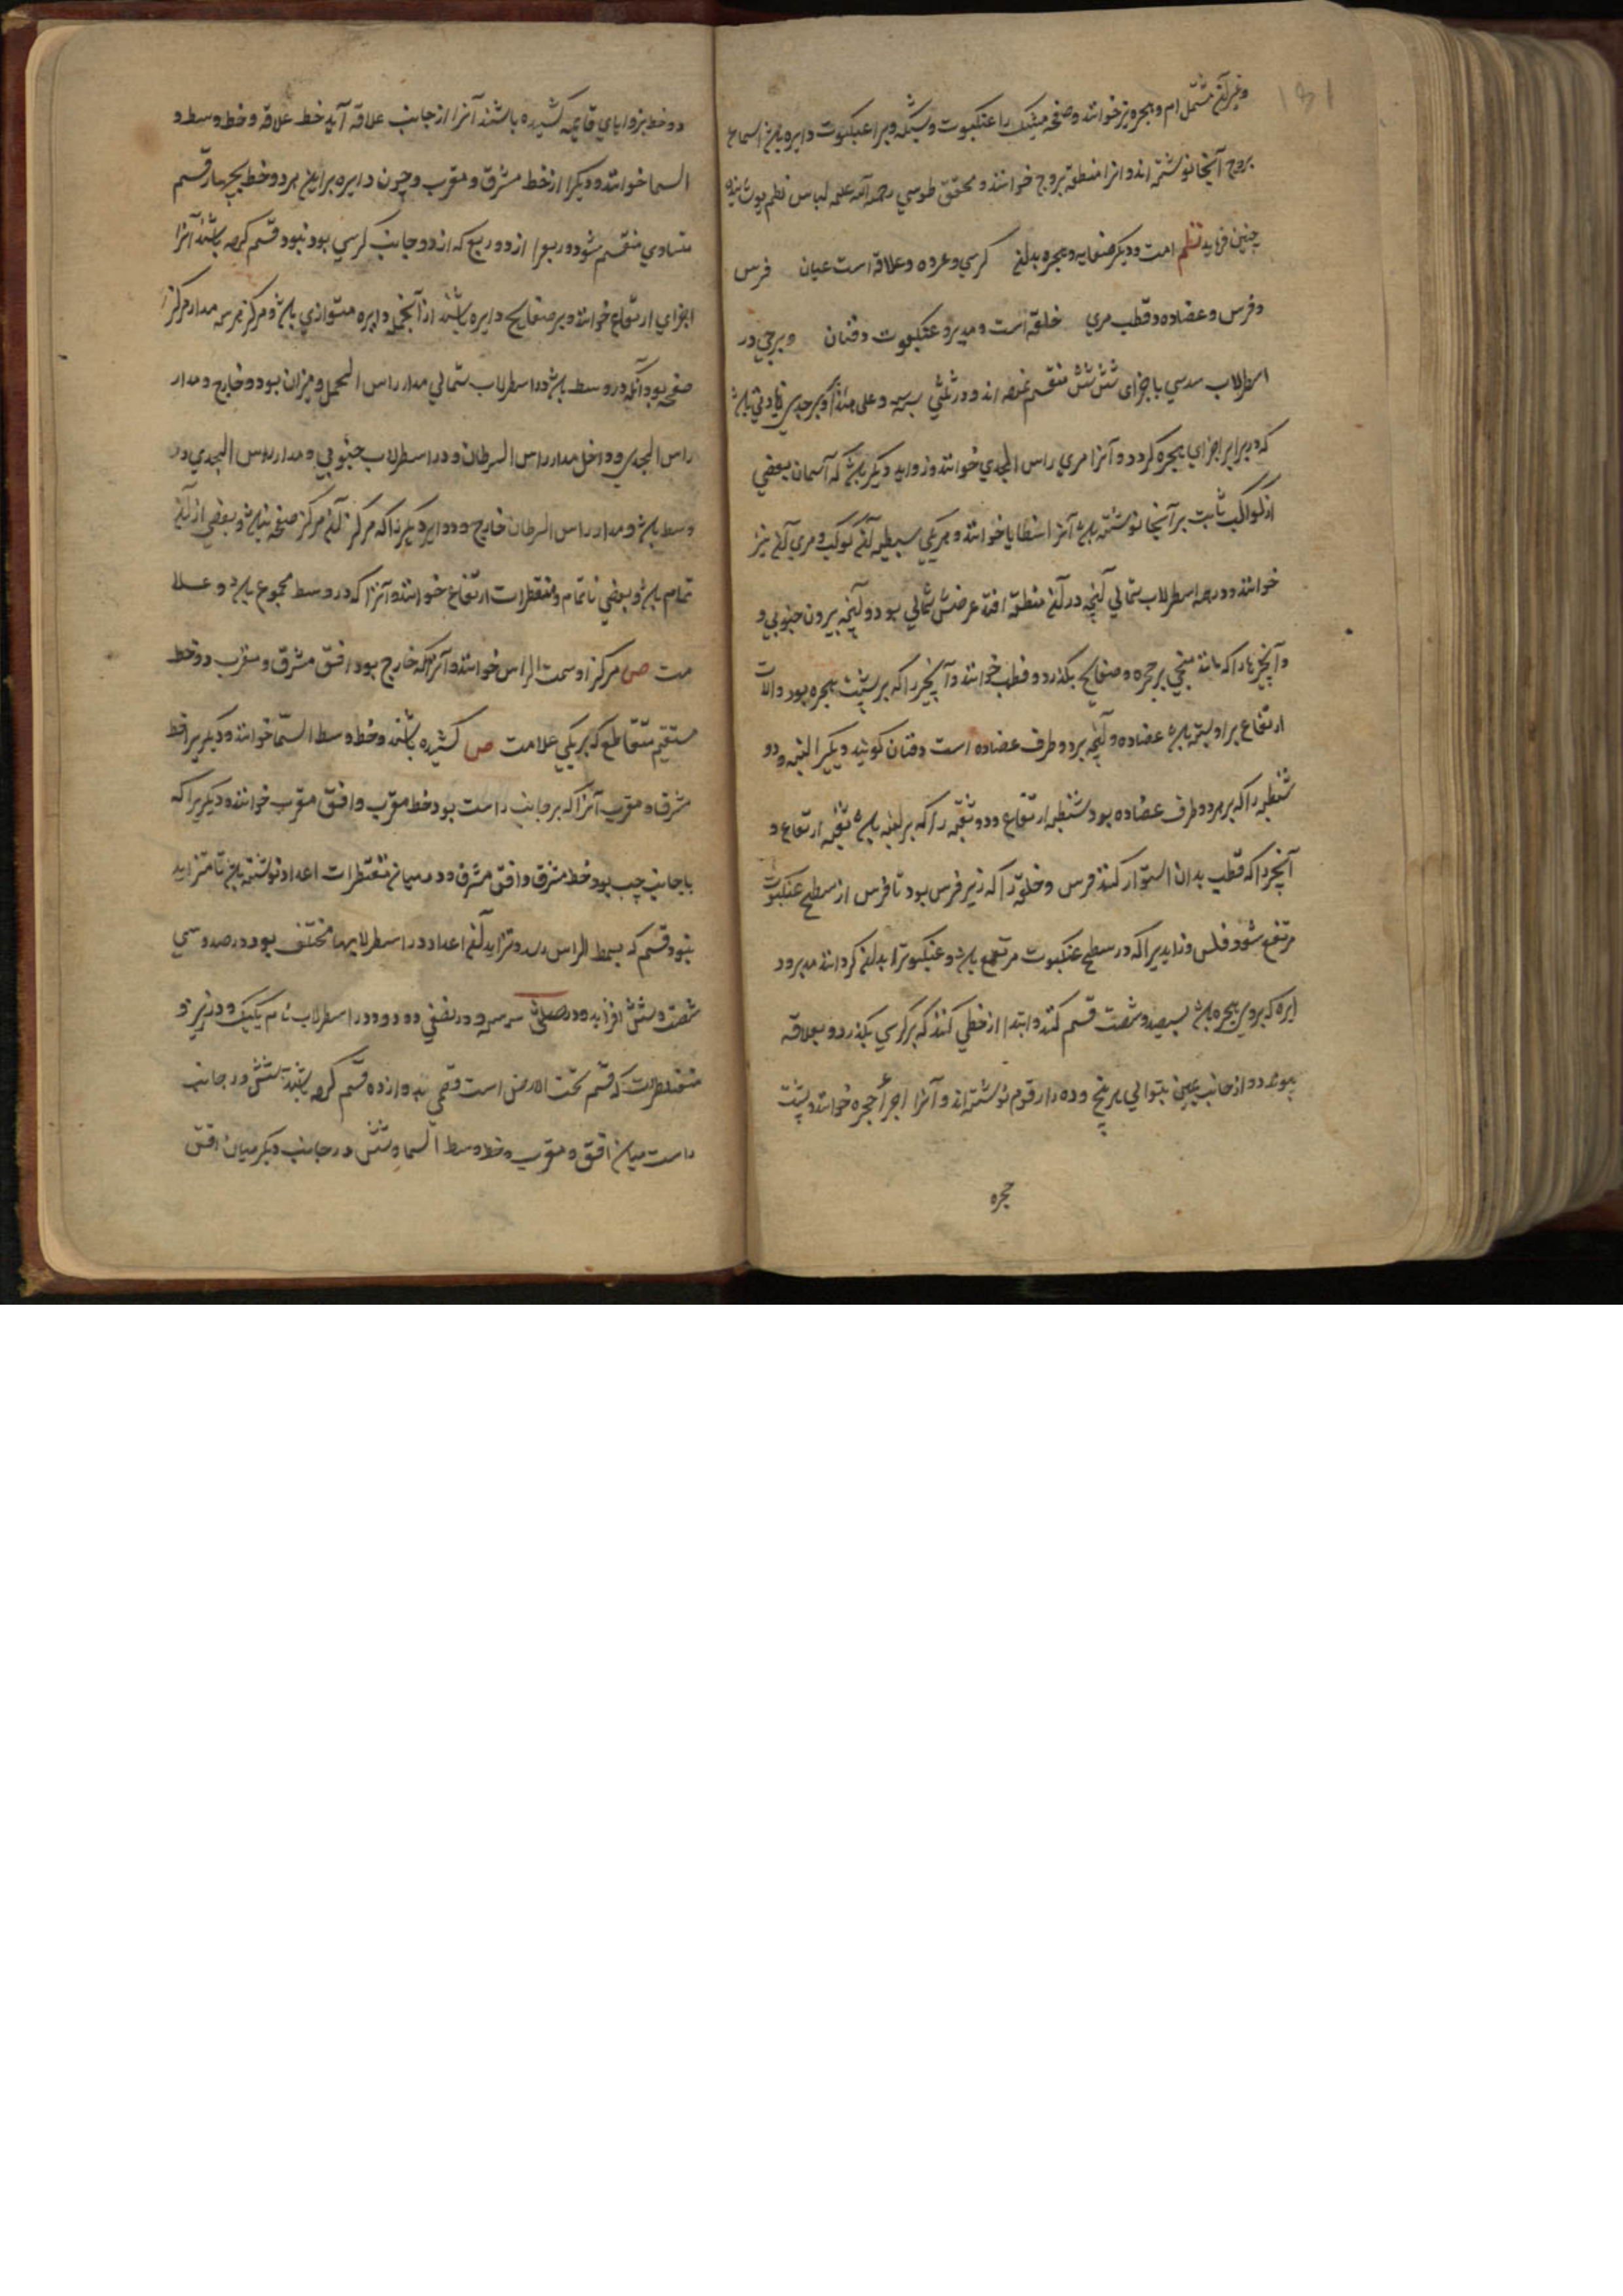 ۱۵۱
و غیر آن مشتمل ام و حجره نیز خوانند و صفحه مشبک را عنکبوت و شبکه و بر عنکبوت دایره باشد اسماء
بروج آنجا نوشته اند و انرا منطقة بروج خوانند و محقق طوسی رحمة الله علیه لباس نظم پوشانیده
چنین فرماید نظم امت و دیگر صفایح و حجره بدان کرسی و عروه و علاقه است عیان فرس
و فرس و عضاده و قطب مری حلقه است و مدیر و عنکبوت دفتان و برجی در
اسطرلاب سدسی باجزای شش شش منقسم اند و در ثلثی سه سه و علی هذا و بر جدی زیادتی باشد
که در برابر اجزای حجره کردد و آنرا مری راس الجدی خوانند و زواید دیگر باشد که آسمان بعضی
از کواکب ثابت بر آنجا نوشته باشد آنرا شظایا خوانند و هریکی شظیه آن کوکب و مری آن نیز
خوانند و در اسطرلاب شمالی آنچه در آن منطقه افتد عرضش شمالی بود و آنچه بیرون جنوبی و
و آنچیز را که مانند میخی بر حجره و صفایح بگذرد و قطب خوانند و آنچیز را که بر پشت حجره بود و آلات
ارتفاع بر او بسته باشد عضاده و آنچه بر دو طرف عضاده است دفتان کویند و یکی را لبنه و دو
شظیه را که بر هر دو طرف عضاده بود شظیه ارتفاع و دو ثقبه را که بر لبنه باشد ثقبه ارتفاع و
آنچیز را که قطب بدان استوار کنند فرس و حلقه را که زیر فرس بود تا فرس از سطح عنکبوت
مرتفع شود فلس و زاید را که در سطح عنکبوت مرتفع باشد و عنکبوت را بدان کردانند مدیر و د
ایره که بر روی حجره باشد بسیصد و شصت قسم کنند و ابتدا از خطی کنند که بر کرسی بگذرد و بعلاقه
پیوندد و از جانب یمین بتوالی بر پنج و ده را رقوم نوشته اند و آنرا اجزاء حجره خوانند و پشت
حجره
دو خط بزوایای قایمه کشیده باشند آنرا از جانب علاقه آید خط علاقه و خط وسط و
السما خوانند و دیگر را از خط مشرق و مغرب و چون دایره برین هر دو خط بچهار قسم
متساوی منقسم شود و ربع را از دو ربع که از دو جانب کرسی بود بنود قسم کرده باشند آنرا
اجزای ارتفاع خوانند و بر صفایح دایره باشند از آنجمله دایره متوازی باشد و مرکز هر سه مدار مرکز
صفحه بود آنکه در وسط باشد در اسطرلاب شمالی مدار راس الحمل و میزان بود و خارج و مدار
راس الجدی و داخل مدار راس السرطان و در اسطرلاب جنوبی و مدار راس الجدی در
وسط باشد و مدار راس السرطان خارج و دوایر دیگر را که مرکز آن مرکز صفحه نباشد و بعضی از آن
تمام باشد و بعضی ناتمام و مقنطرات ارتفاع خوانند و آنرا که در وسط مجموع باشد و علا
مت ص مرکز او سمت الراس خوانند و آنرا که خارج بود افق مشرق و مغرب و دو خط
مستقیم متقاطع که بریکی علامت ص کشیده باشند و خط وسط السما خوانند و دیگر را خط
مشرق و مغرب آنرا که بر جانب راست بود خط مغرب و افق مغرب خوانند و دیگر را که
با جانب چپ بود خط مشرق و افق مشرق و در میان مقنطرات اعداد نوشته باشد تا متزاید
بنود قسم که بسمت الراس رسد و تزاید آن اعداد در اسطرلابها مختلف بود در سدسی
شصت و شش افزاید و در ثلثی سه سه و در نصفی دو دو و در اسطرلاب تام یک یک و در زیر
مقنطرات که قسم تحت الارض است قسمی بدوازده قسم کرده باشند شش در جانب
راست میان افق و مغرب و خط وسط السما و شش در جانب دیگر میان افق